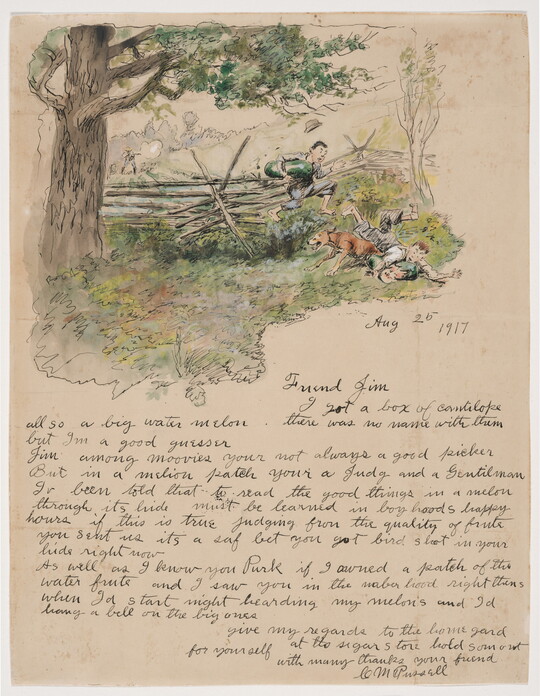 Aug 25 1917
Friend Jim
I got a box of cantilope
all so a big water melon . there was no name with them
but Im a good guesser
Jim among moovies your not always a good picker
But in a melion patch your a Judg and a Gentilman
Iv been told that to read the good things in a melon
through its hide must be learned in boy hoods happy
hours if this is true judging from the quality of frute
you sent us its a saf bet you got bird shot in your
hide right now
As well as I know you Purk if I owned a patch of this
water frute and I saw you in the naber hood right thens
when Id start night hearding my melons and Id
hang a bell on the big ones
give my regards to the home gard
at the sigar store hold som out
for yourself
with many thanks your friend
C M Russell